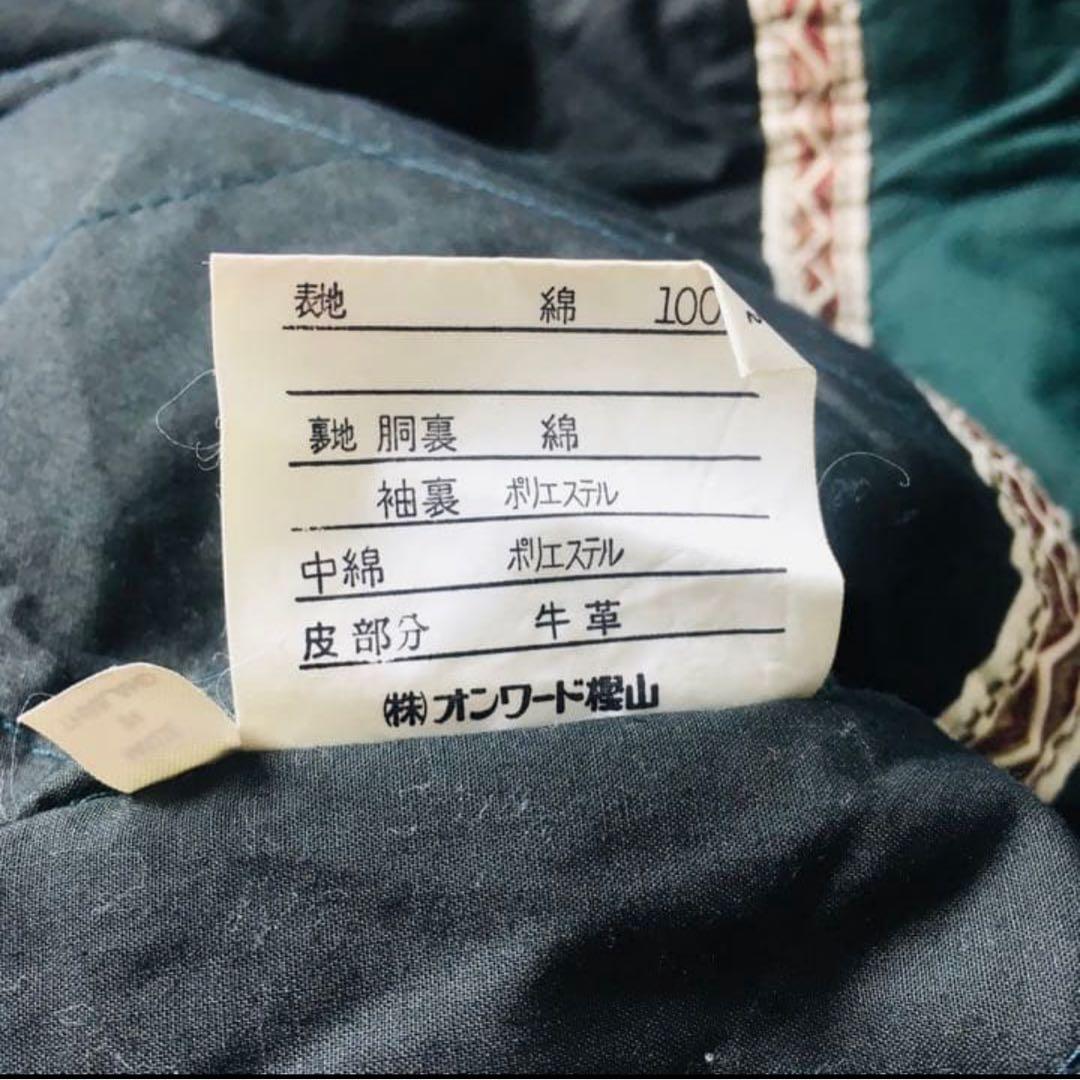 表地 綿 100
裏地 胴裏 綿
袖裏 ポリエステル
中綿 ポリエステル
皮部分 牛革
(株)オンワード樫山